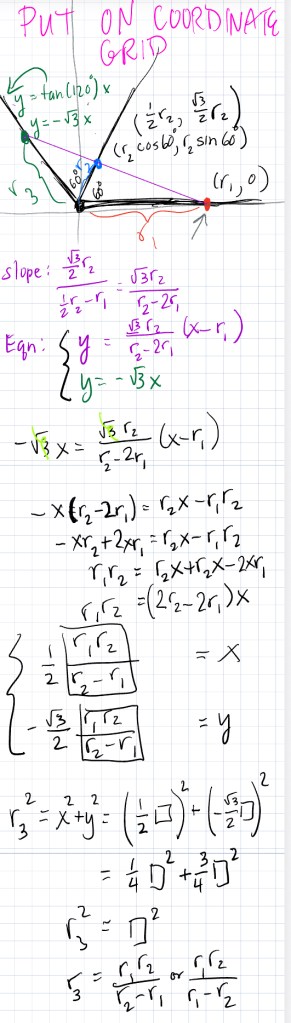 PUT ON COORDINATE
GRID
y = tan(120°) x
y = -√3 x
(1/2 r₂, √3/2 r₂)
(r₂ cos60°, r₂ sin 60°)
r₂
r₃
60°
60°
(r₁, 0)
r₁
slope: (√3/2 r₂)/(1/2 r₂ - r₁) = √3 r₂/(r₂ - 2r₁)
Eqn: { y = √3 r₂/(r₂ - 2r₁) (x - r₁)
y = -√3 x
-√3 x = √3 r₂/(r₂ - 2r₁) (x - r₁)
-x(r₂ - 2r₁) = r₂x - r₁r₂
-xr₂ + 2xr₁ = r₂x - r₁r₂
r₁r₂ = r₂x + r₂x - 2xr₁
r₁r₂ = (2r₂ - 2r₁)x
{ 1/2 r₁r₂/(r₂ - r₁) = x
-√3/2 r₁r₂/(r₂ - r₁) = y
r₃² = x² + y² = (1/2 □)² + (-√3/2 □)²
= 1/4 □² + 3/4 □²
r₃² = □²
r₃ = r₁r₂/(r₂ - r₁) or r₁r₂/(r₁ - r₂)